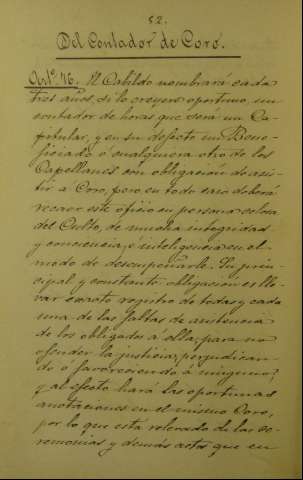 52.
Del Contador de Coro.
Arto. 76. El Cabildo nombrará cada
tres años, si lo creyere oportuno, un
contador de horas que será un Ca-
pitular, y en su defecto un Bene-
ficiado ó cualquiera otro de los
Capellanes con obligación de asis-
tir a Coro, pero en todo caso deberá
recaer este oficio en persona celosa
del Culto, de mucha integridad
y conciencia, é inteligencia en el
modo de desempeñarle. Su prin-
cipal y constante obligacion es lle-
var exacto registro de todas y cada
una de las faltas de asistencia
de los obligados á ella, para no
ofender la justicia, perjudican-
do ó favoreciendo á ninguno;
y al efecto hará las oportunas
anotaciones en el mismo Coro,
por lo que está relevado de las ce-
remonias y demás actos que en